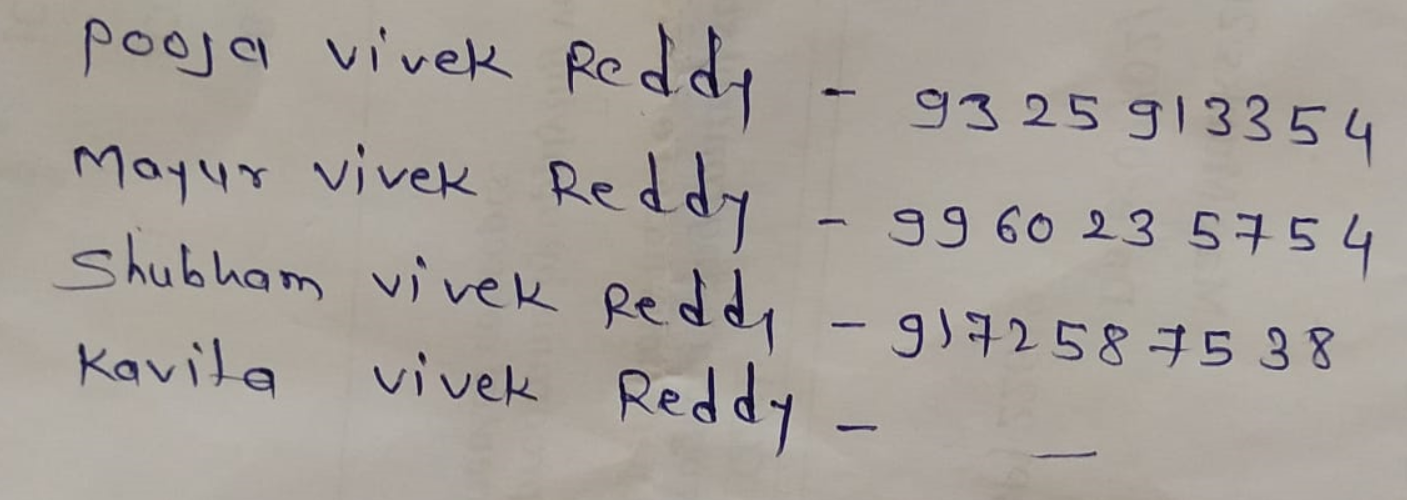 Pooja vivek Reddy - 9325913354
Mayur vivek Reddy - 9960235754
Shubham vivek Reddy - 9172587538
Kavita vivek Reddy - —